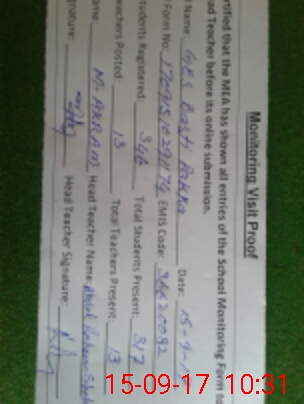 Monitoring Visit Proof
rtified that the MEA has shown all entries of the School Monitoring Form to
ad Teacher before its online submission.
Name: GES Basti Date: 15-9-17
Form No: EMIS Code: 36620092
tudents Registered: 346 Total Students Present: 317
eachers Posted: 13 Total Teachers Present: 13
ame: M. AKRAM Head Teacher Name:
gnature: Head Teacher Signature:
15-09-17 10:31